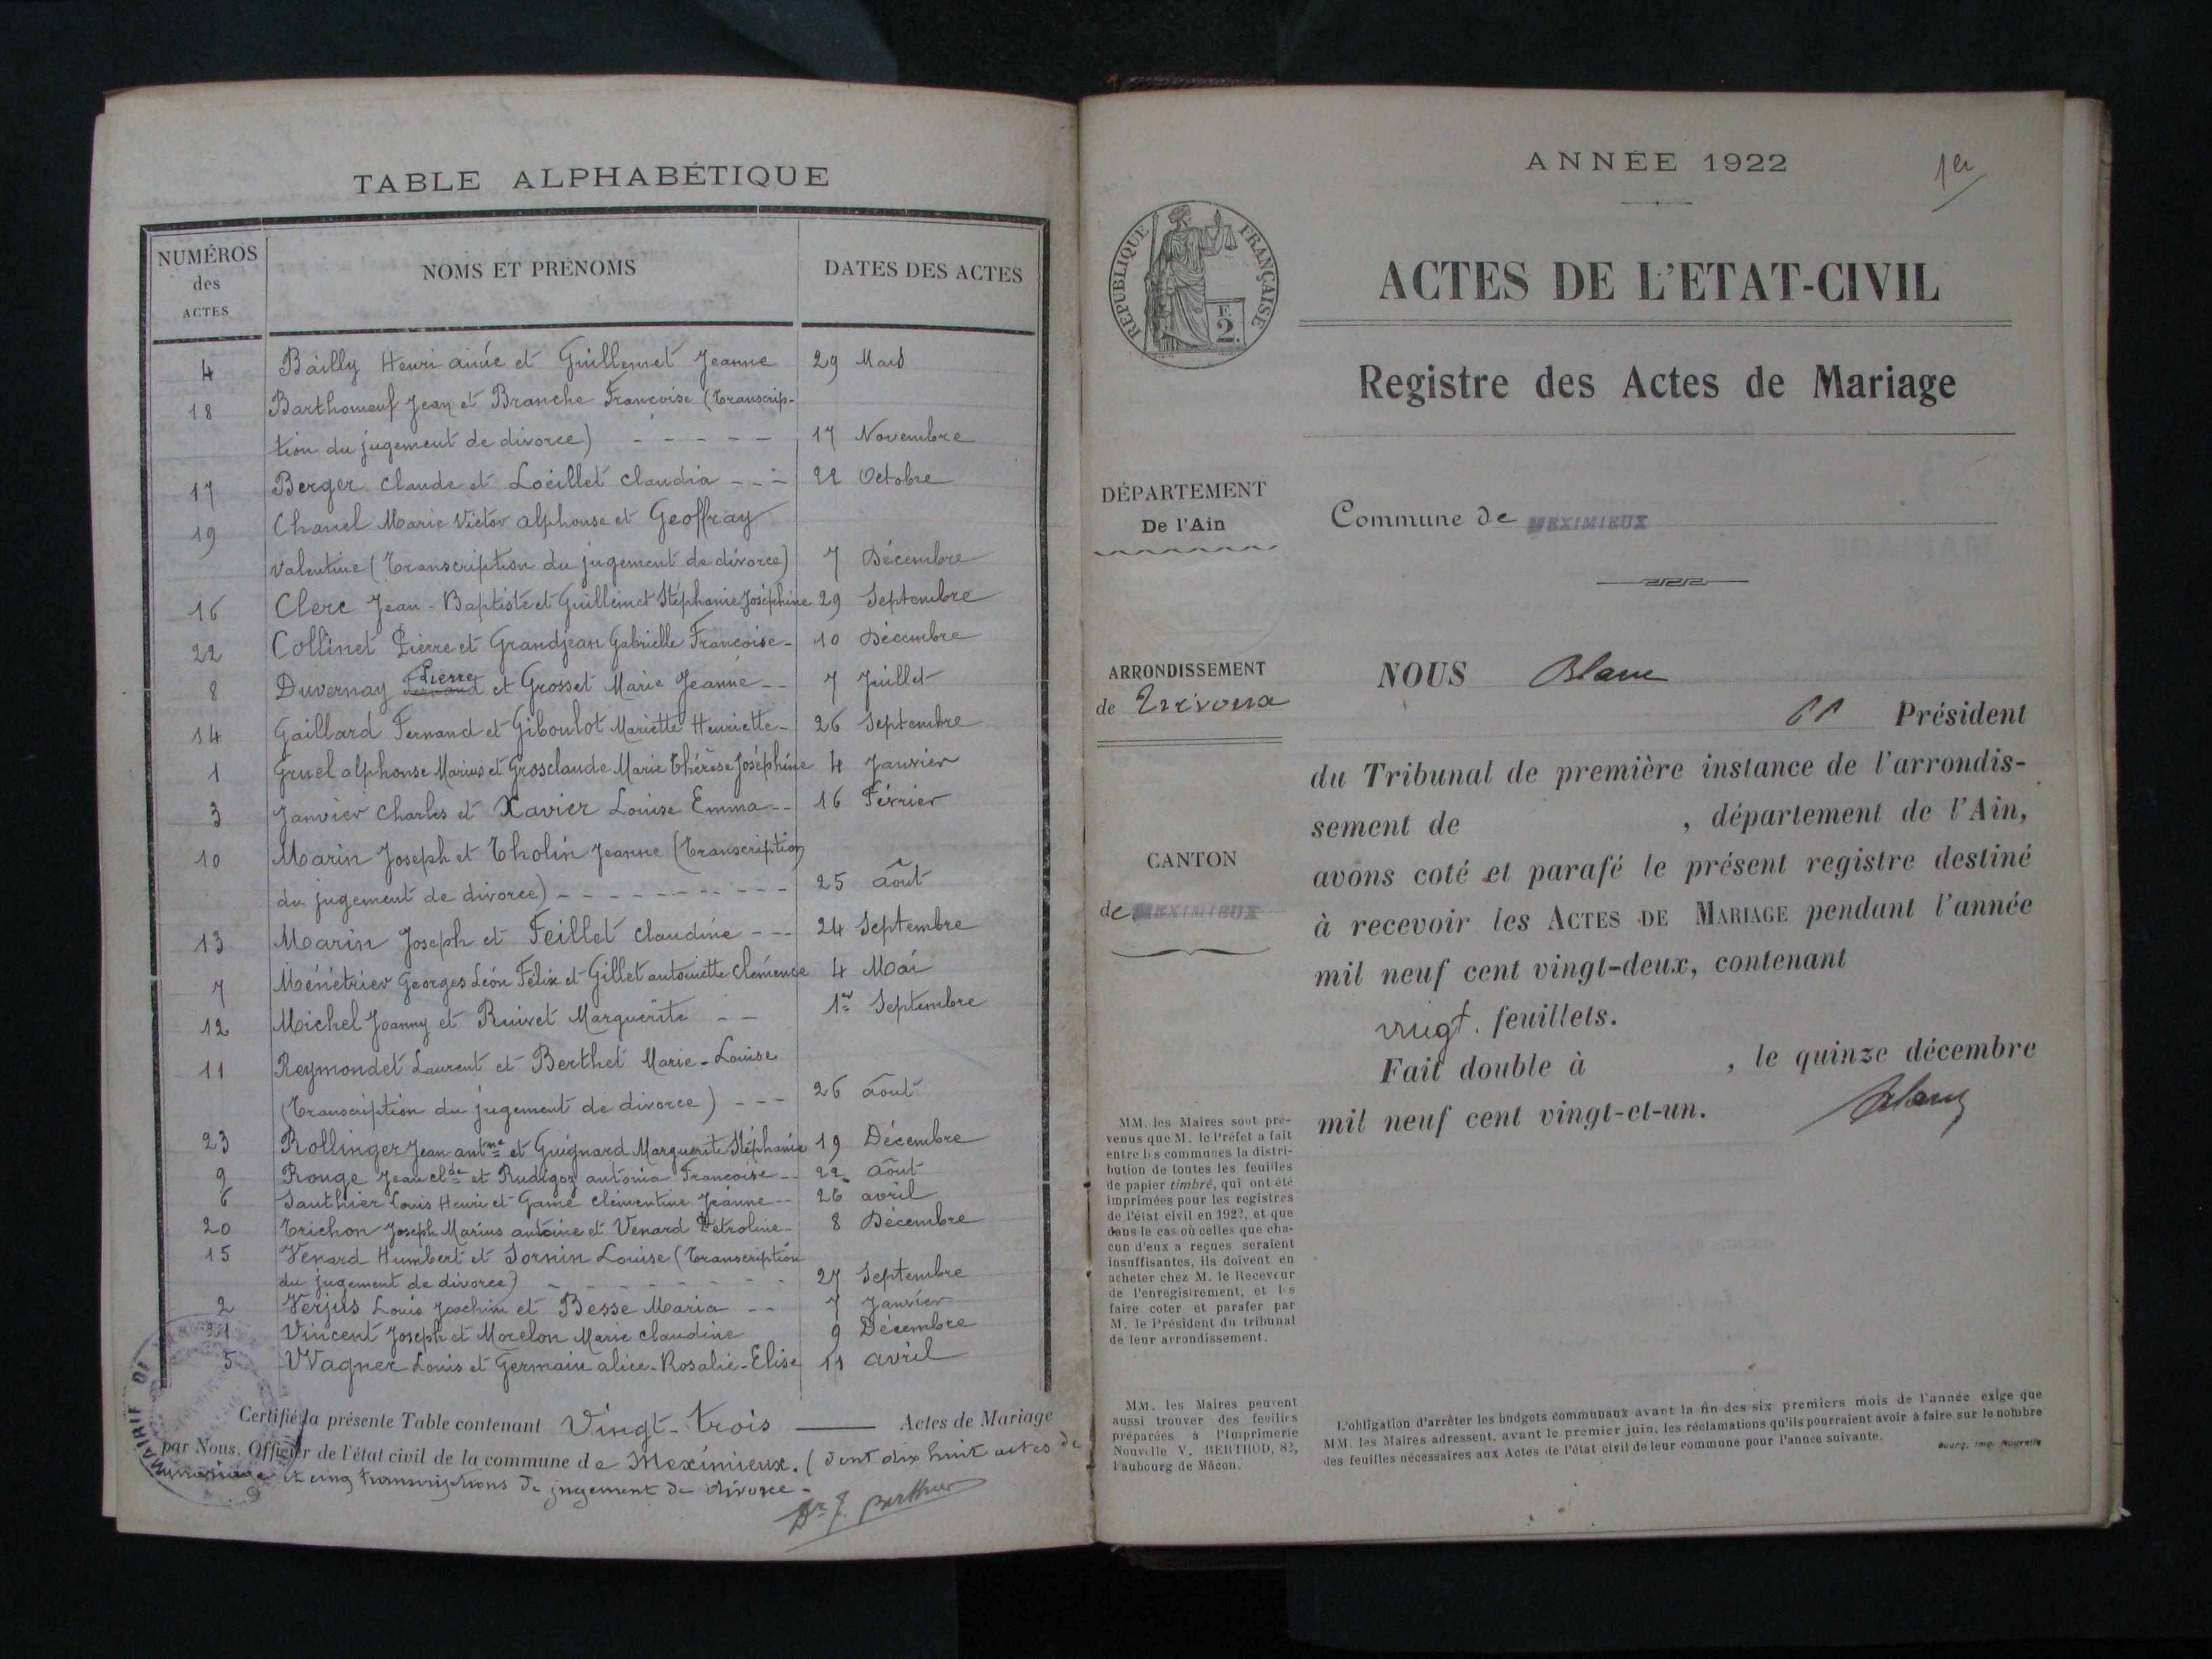 TABLE ALPHABÉTIQUE
NUMÉROS des ACTES
NOMS ET PRÉNOMS
DATES DES ACTES
4 Bailly Henri aimé et Guillemet Jeanne 29 Mars
18 Barthomeuf Jean et Branche Francoise (Transcrip-
tion du jugement de divorce) - - - - - 17 Novembre
17 Berger Claude et Loeillet Claudia - - - 22 Octobre
19 Chanel Marie Victor alphonse et Geoffray
Valentine (Transcription du jugement de divorce) 7 Décembre
16 Clerc Jean-Baptiste et Guillemet Stéphanie Joséphine 29 Septembre
22 Collinet Pierre et Grandjean Gabrielle Francoise - 10 Décembre
8 Duvernay Pierre et Grosset Marie Jeanne - - 7 Juillet
14 Gaillard Fernand et Giboulot Mariette Henriette - 26 Septembre
1 Gruel alphonse Marius et Grosclaude Marie Thérèse Joséphine 4 Janvier
3 Janvier Charles et Xavier Louise Emma - - 16 Février
10 Marin Joseph et Tholin Jeanne (Transcription
du jugement de divorce) - - - - - - - - - 25 août
13 Marin Joseph et Feillet Claudine - - - 24 Septembre
7 Ménétrier Georges Léon Félix et Gillet antoinette Clémence 4 Mai
12 Michel Joanny et Ruivet Marguerite - - 1er Septembre
11 Reymondet Laurent et Berthet Marie-Louise
(Transcription du jugement de divorce) - - - 26 août
23 Rollinger Jean antne et Guignard Marguerite Stéphanie 19 Décembre
9 Rouge Jean Clde et Rudigoz antonia Francoise - - 22 août
6 Sauthier Louis Henri et Game Clémentine Jeanne - - 26 avril
20 Trichon Joseph Marius antoine et Venard Pétroline - 8 Décembre
15 Venard Humbert et Sornin Louise (Transcription
du jugement de divorce) - - - - - - - 27 Septembre
2 Verjus Louis Joachim et Besse Maria - - 7 Janvier
21 Vincent Joseph et Morelon Marie Claudine 9 Décembre
5 Wagner Louis et Germain alice-Rosalie-Elise 11 avril
Certifié la présente Table contenant Vingt-trois Actes de Mariage
par Nous, Officier de l'état civil de la commune de Meximieux. (dont dix huit actes de
mariage et cinq transcriptions de jugement de divorce -
Dr J. Berthier
MAIRIE DE
ANNÉE 1922
1er
RÉPUBLIQUE FRANÇAISE
F.
2.
ACTES DE L'ETAT-CIVIL
Registre des Actes de Mariage
DÉPARTEMENT
De l'Ain
Commune de MEXIMIEUX
ARRONDISSEMENT
de Trévoux
CANTON
de MEXIMIEUX
NOUS Blanc
Président
du Tribunal de première instance de l'arrondis-
sement de , département de l'Ain,
avons coté et parafé le présent registre destiné
à recevoir les ACTES DE MARIAGE pendant l'année
mil neuf cent vingt-deux, contenant
vingt feuillets.
Fait double à , le quinze décembre
mil neuf cent vingt-et-un.
Blanc
MM. les Maires sont pré-
venus que M. le Préfet a fait
entre les communes la distri-
bution de toutes les feuilles
de papier timbré, qui ont été
imprimées pour les registres
de l'état civil en 1922, et que
dans le cas où celles que cha-
cun d'eux a reçues seraient
insuffisantes, ils doivent en
acheter chez M. le Receveur
de l'enregistrement, et les
faire coter et parafer par
M. le Président du tribunal
de leur arrondissement.
MM. les Maires peuvent
aussi trouver des feuilles
préparées à l'Imprimerie
Nouvelle V. BERTHOD, 82,
Faubourg de Mâcon.
L'obligation d'arrêter les budgets communaux avant la fin des six premiers mois de l'année exige que
MM. les Maires adressent, avant le premier juin, les réclamations qu'ils pourraient avoir à faire sur le nombre
des feuilles nécessaires aux Actes de l'état civil de leur commune pour l'année suivante.
Bourg. Imp. Nouvelle